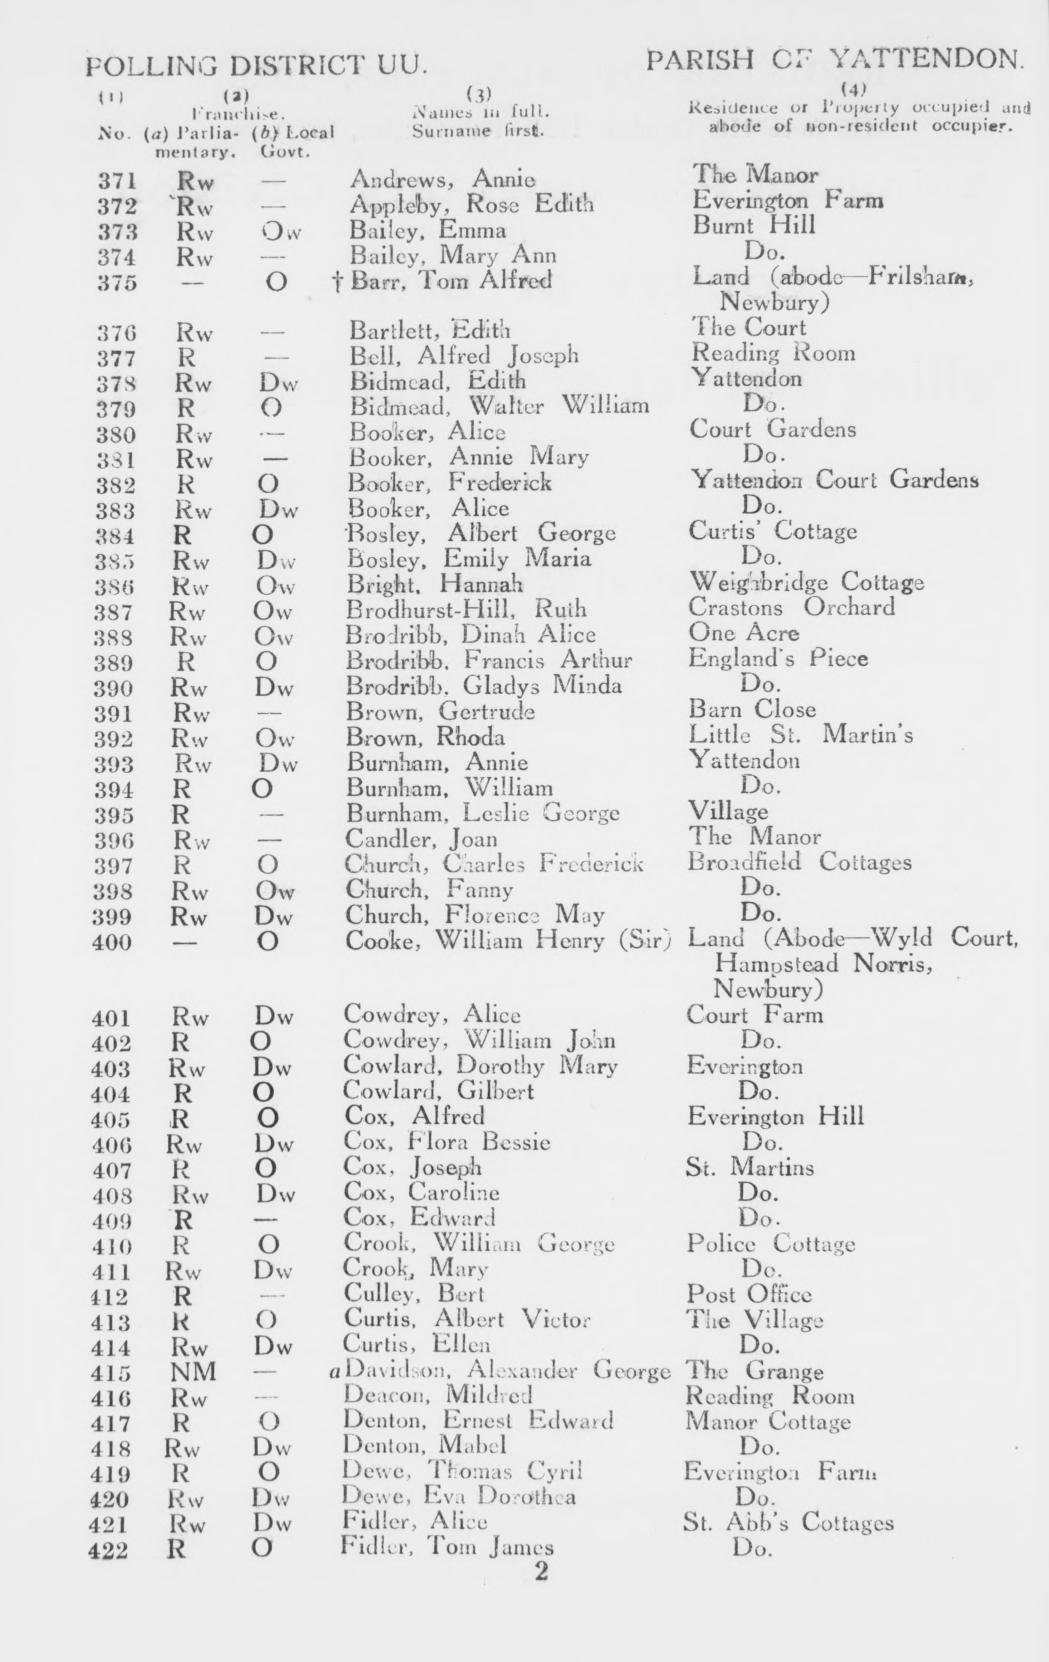 POLLING DISTRICT UU. PARISH OF YATTENDON.
(1) (2) (3) (4)
Franchise. Names in full. Residence or Property occupied and
No. (a) Parlia- (b) Local Surname first. abode of non-resident occupier.
mentary. Govt.
371 Rw — Andrews, Annie The Manor
372 Rw — Appleby, Rose Edith Everington Farm
373 Rw Ow Bailey, Emma Burnt Hill
374 Rw — Bailey, Mary Ann Do.
375 — O † Barr, Tom Alfred Land (abode—Frilsham,
Newbury)
376 Rw — Bartlett, Edith The Court
377 R — Bell, Alfred Joseph Reading Room
378 Rw Dw Bidmead, Edith Yattendon
379 R O Bidmead, Walter William Do.
380 Rw — Booker, Alice Court Gardens
381 Rw — Booker, Annie Mary Do.
382 R O Booker, Frederick Yattendon Court Gardens
383 Rw Dw Booker, Alice Do.
384 R O Bosley, Albert George Curtis' Cottage
385 Rw Dw Bosley, Emily Maria Do.
386 Rw Ow Bright, Hannah Weighbridge Cottage
387 Rw Ow Brodhurst-Hill, Ruth Crastons Orchard
388 Rw Ow Brodribb, Dinah Alice One Acre
389 R O Brodribb, Francis Arthur England's Piece
390 Rw Dw Brodribb, Gladys Minda Do.
391 Rw — Brown, Gertrude Barn Close
392 Rw Ow Brown, Rhoda Little St. Martin's
393 Rw Dw Burnham, Annie Yattendon
394 R O Burnham, William Do.
395 R — Burnham, Leslie George Village
396 Rw — Candler, Joan The Manor
397 R O Church, Charles Frederick Broadfield Cottages
398 Rw Ow Church, Fanny Do.
399 Rw Dw Church, Florence May Do.
400 — O Cooke, William Henry (Sir) Land (Abode—Wyld Court,
Hampstead Norris,
Newbury)
401 Rw Dw Cowdrey, Alice Court Farm
402 R O Cowdrey, William John Do.
403 Rw Dw Cowlard, Dorothy Mary Everington
404 R O Cowlard, Gilbert Do.
405 R O Cox, Alfred Everington Hill
406 Rw Dw Cox, Flora Bessie Do.
407 R O Cox, Joseph St. Martins
408 Rw Dw Cox, Caroline Do.
409 R — Cox, Edward Do.
410 R O Crook, William George Police Cottage
411 Rw Dw Crook, Mary Do.
412 R — Culley, Bert Post Office
413 R O Curtis, Albert Victor The Village
414 Rw Dw Curtis, Ellen Do.
415 NM — a Davidson, Alexander George The Grange
416 Rw — Deacon, Mildred Reading Room
417 R O Denton, Ernest Edward Manor Cottage
418 Rw Dw Denton, Mabel Do.
419 R O Dewe, Thomas Cyril Everington Farm
420 Rw Dw Dewe, Eva Dorothea Do.
421 Rw Dw Fidler, Alice St. Abb's Cottages
422 R O Fidler, Tom James Do.
2